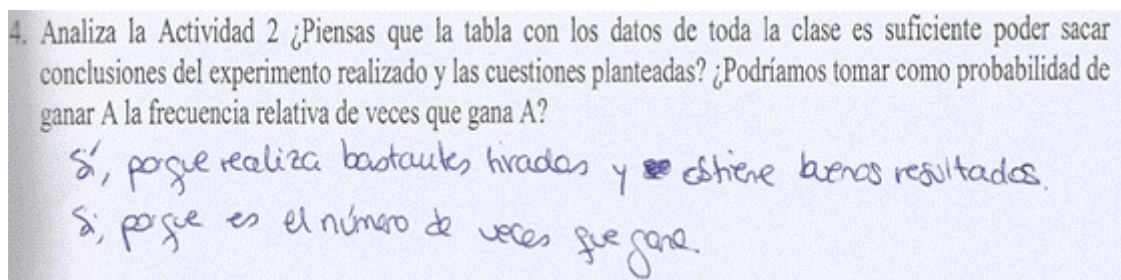 4. Analiza la Actividad 2 ¿Piensas que la tabla con los datos de toda la clase es suficiente poder sacar
conclusiones del experimento realizado y las cuestiones planteadas? ¿Podríamos tomar como probabilidad de
ganar A la frecuencia relativa de veces que gana A?
Sí, porque realiza bastantes tiradas y obtiene buenos resultados.
Si, porque es el número de veces que gana.